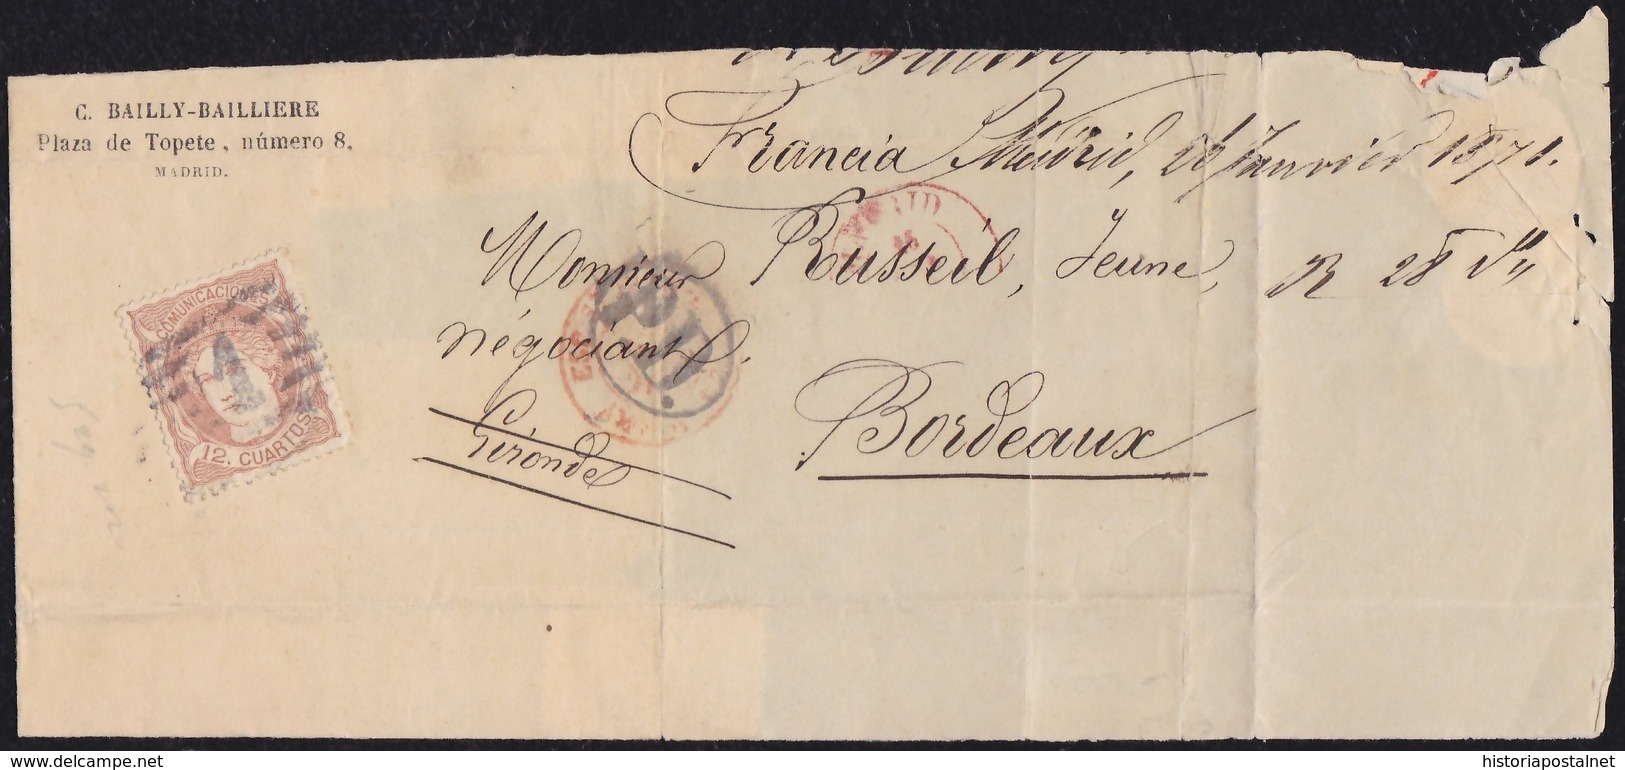 C. BAILLY-BAILLIERE
Plaza de Topete, número 8.
MADRID.
Francia Madrid, 26 Janvier 1871.
Monsieur Russeil, Jeune, R 28
négociant.
Bordeaux
Gironde
COMUNICACIONES
12. CUARTOS
PD.
MADRID
historiapostalnet